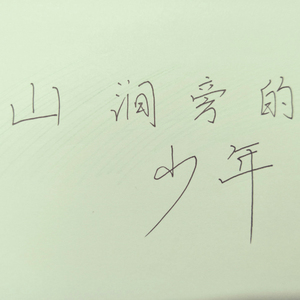 山涧旁的
少年